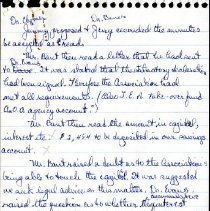 Dr. Bauer
Jimmy proposed & Jerry seconded the minutes
be accepted as read.
Mr. Bant then read a letter that he had sent
to It was stated that the
had been signed. Therefore the Association had
met all requirements. (Also J.E.A. Take-over fund
Aid a agency account.)
Mr. Bant then read the amount in capital,
interest etc. $2,454 to be deposited in our savings
account.
Mr. Bant raised a doubt as to the Association's
being able to touch the capital. It was suggested
we ask legal advice on this matter. Dr. Evans
raised the question as to whether the interest